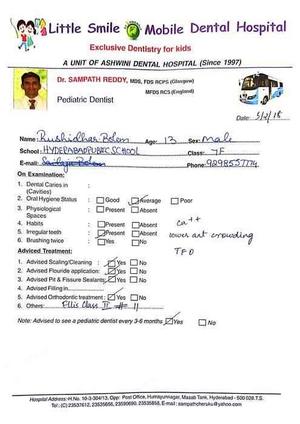 Little Smile Mobile Dental Hospital
Exclusive Dentistry for kids
A UNIT OF ASHWINI DENTAL HOSPITAL (Since 1997)
Dr. SAMPATH REDDY, MDS, FDS RCPS (Glasgow)
MFDS RCS (England)
Pediatric Dentist
Date: 3/2/18
Name: Rushidhar Bolem Age: 13 Sex: Male
School: HYDERABAD PUBLIC SCHOOL Class: 7F
E-mail: Phone:
On Examination:
1. Dental Caries in :
(Cavities)
2. Oral Hygiene Status : Good Average Poor
3. Physiological : Present Absent
Spaces
4. Habits : Present Absent ca++
5. Irregular teeth : Present Absent lower ant crowding
6. Brushing twice : Yes No TFD
Adviced Treatment:
1. Advised Scaling/Cleaning : Yes No
2. Advised Flouride application: Yes No
3. Advised Pit & Fissure Sealants: Yes No
4. Advised Filling in
5. Advised Orthodontic treatment : Yes No
6. Others: Ellis Class II # 11
Note: Advised to see a pediatric dentist every 3-6 months Yes No
Hospital Address: H.No. 10-3-304/13, Opp: Post Office, Humayunnagar, Masab Tank, Hyderabad - 500 028 T.S.
Tel: (C) 23537612, 23535656, 23590690, 23535858, E-mail: sampathcheruku@yahoo.com